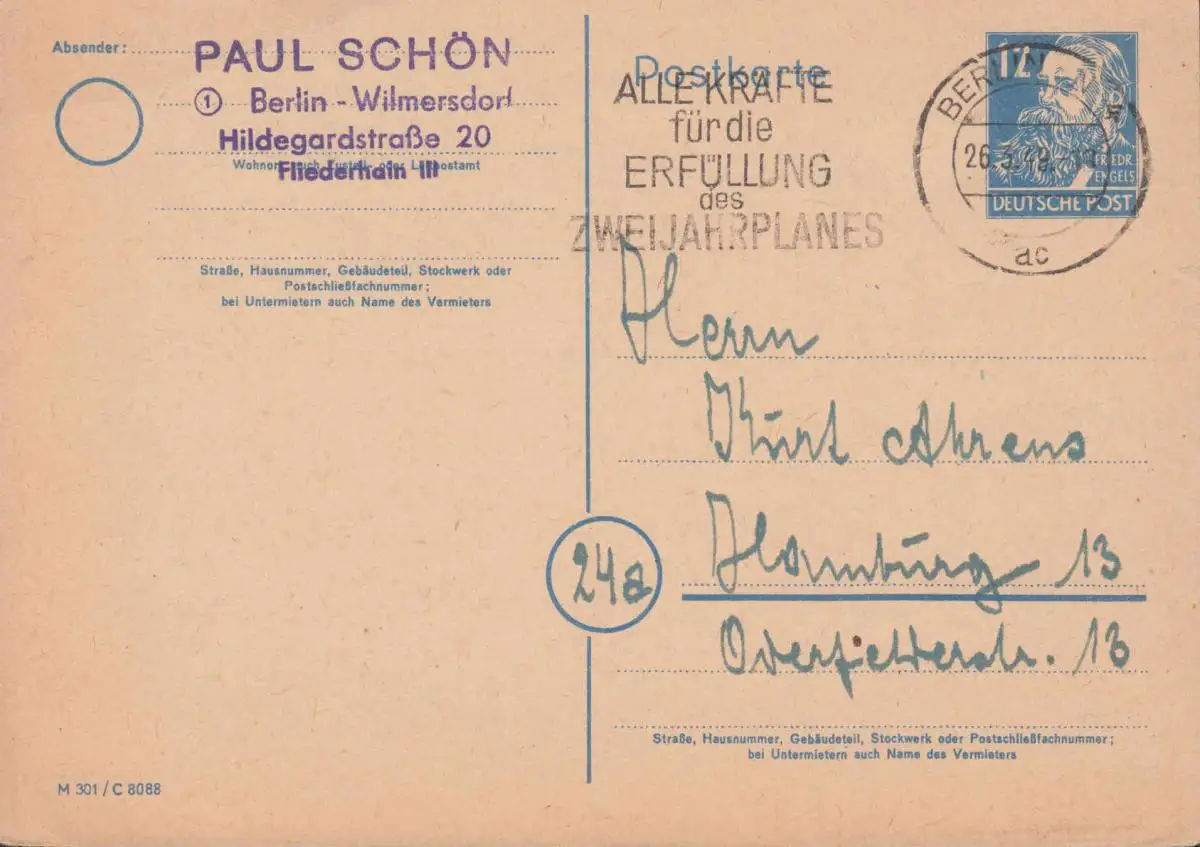 Absender:
PAUL SCHÖN
① Berlin-Wilmersdorf
Hildegardstraße 20
Wohnort, auch Zustell- oder Leitpostamt
Fliederhain III
Straße, Hausnummer, Gebäudeteil, Stockwerk oder
Postschließfachnummer;
bei Untermietern auch Name des Vermieters
M 301/C 8088
Postkarte
ALLE KRÄFTE
für die
ERFÜLLUNG
des
ZWEIJAHRPLANES
BERLIN
26.
ac
12
FRIEDR.
ENGELS
DEUTSCHE POST
Herrn
Kurt Ahrens
24a
Hamburg 13
13
Straße, Hausnummer, Gebäudeteil, Stockwerk oder Postschließfachnummer;
bei Untermietern auch Name des Vermieters